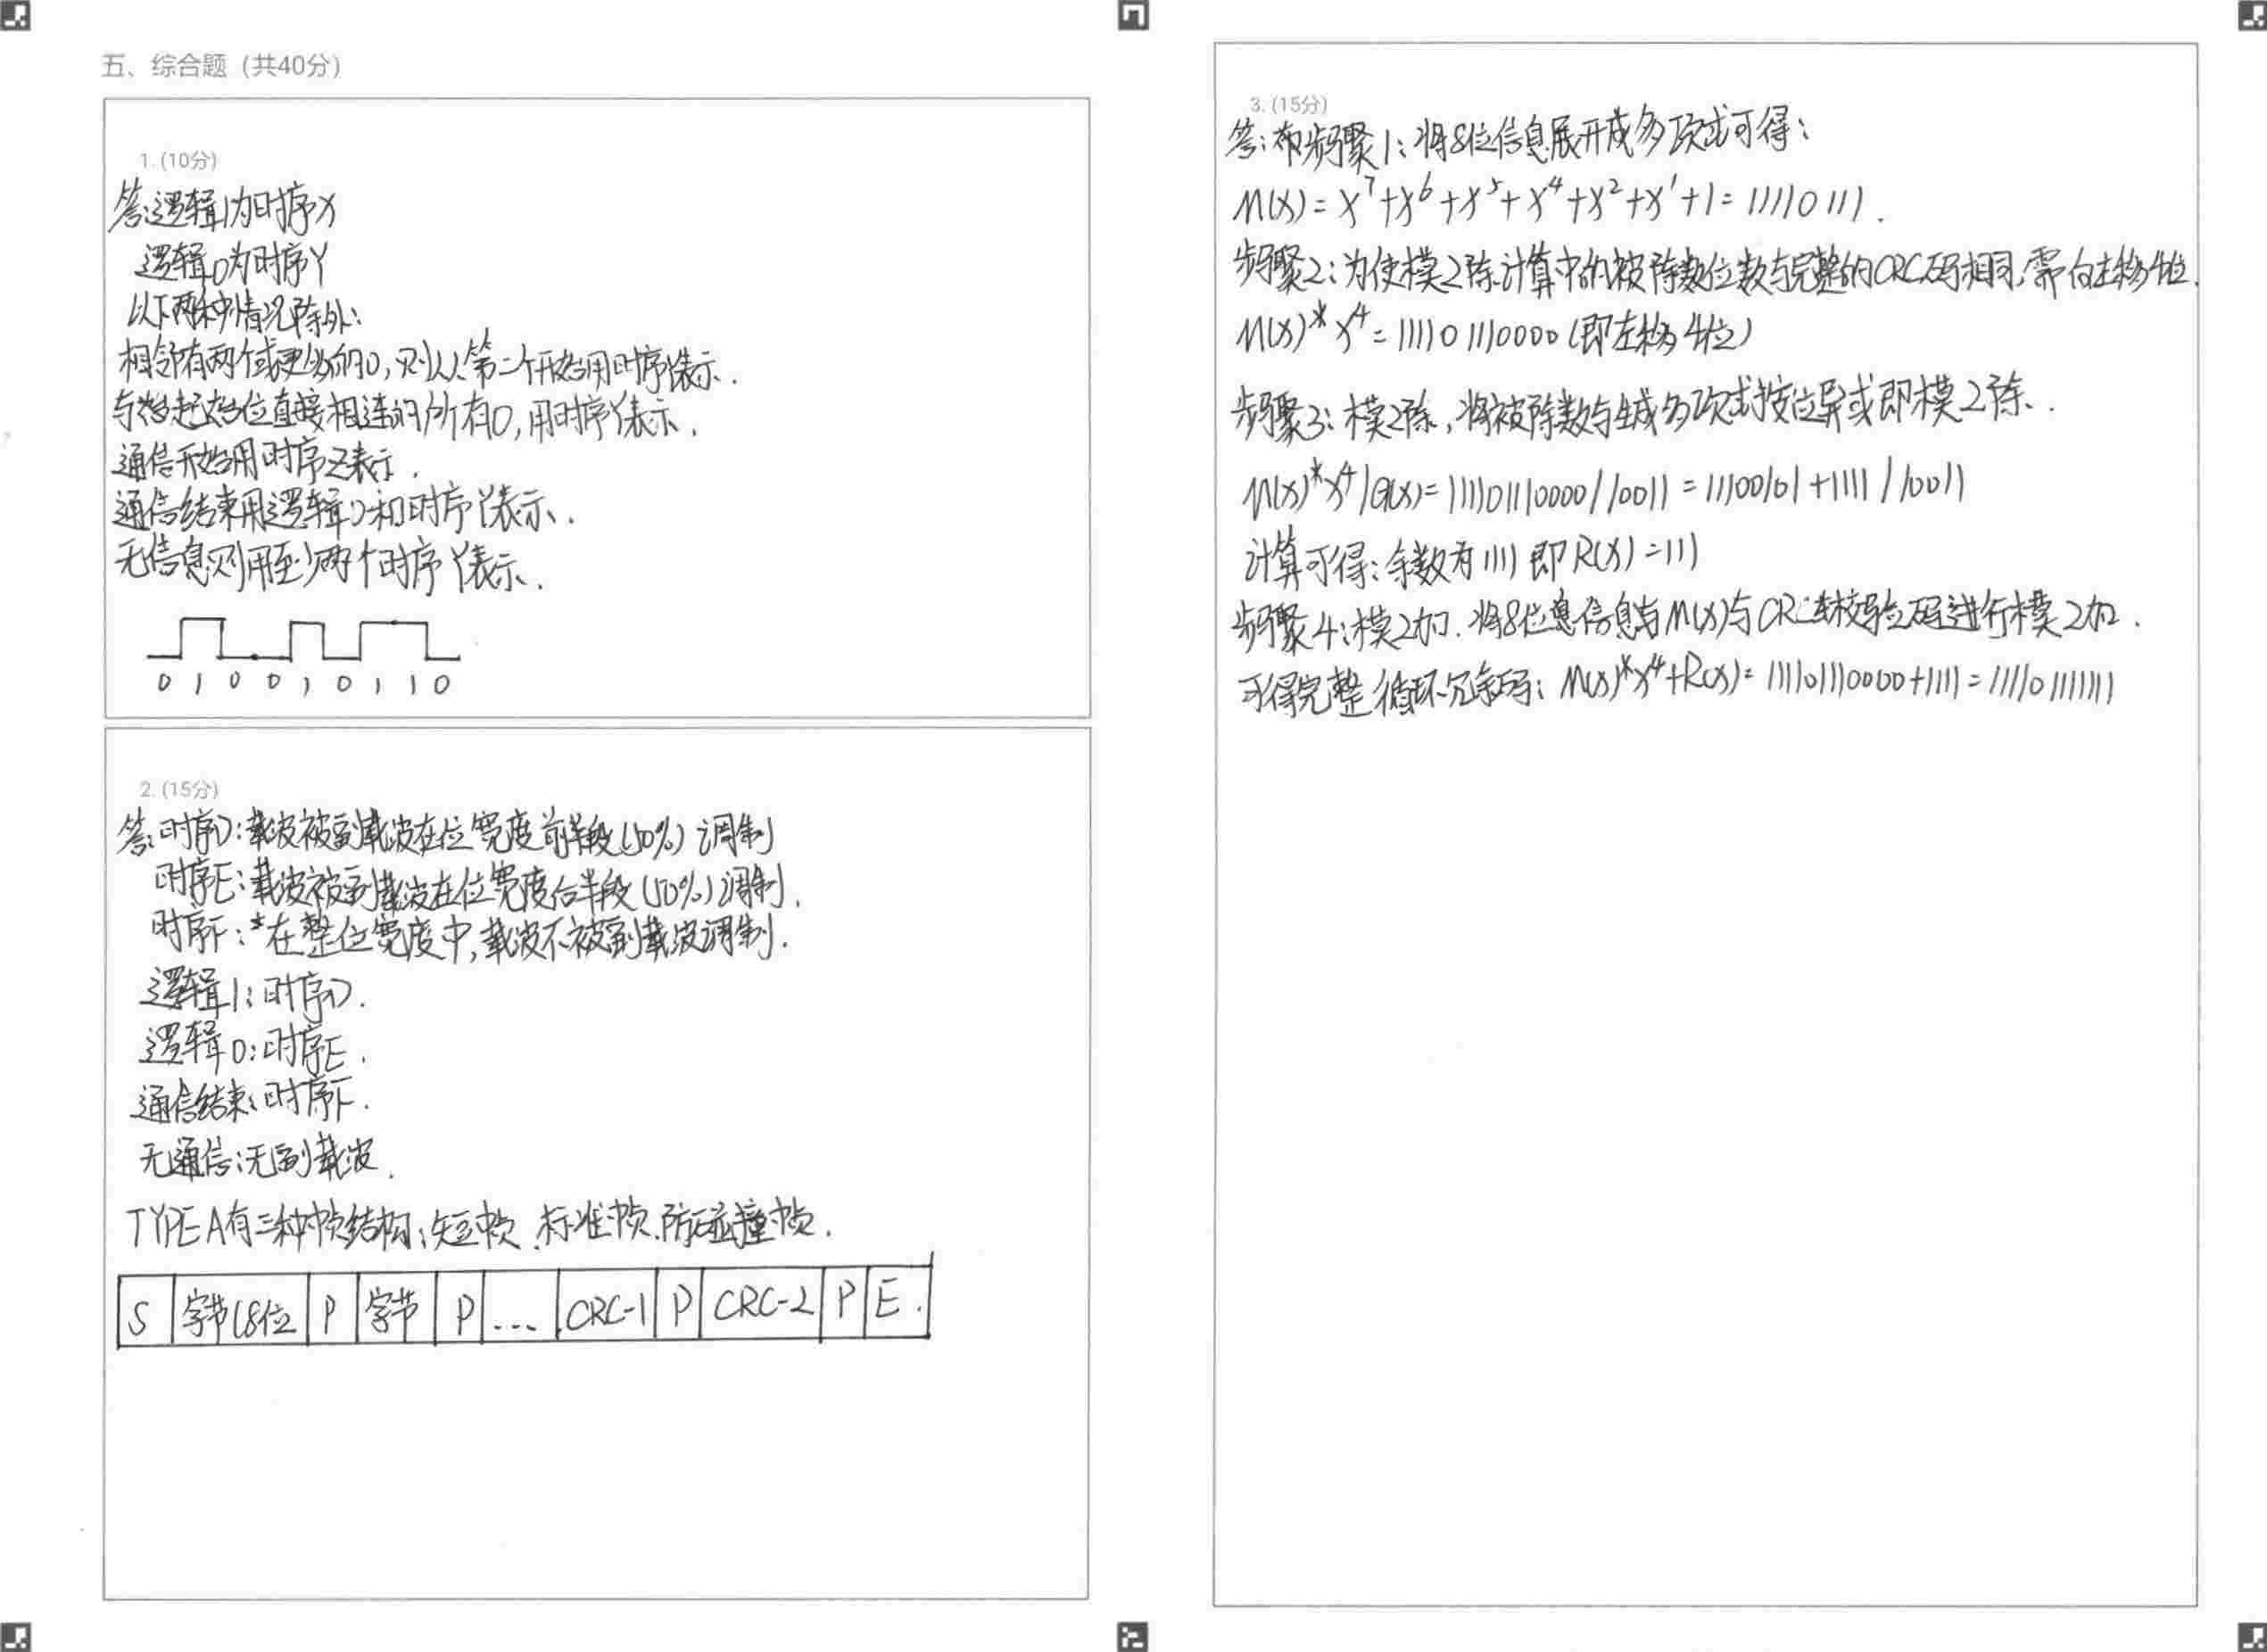 五、综合题 (共40分)
1. (10分)
答:逻辑1为时序X
逻辑0为时序Y
以下两种情况除外:
相邻有两个或更多的0,则从第二个开始用时序Z表示.
与起始位直接相连的所有0,用时序Z表示.
通信开始用时序Z表示.
通信结束用逻辑0和时序Y表示.
无信息则用至少两个时序Y表示.
0 1 0 0 1 0 1 1 0
2. (15分)
答:时序D:载波被副载波在位宽度前半段(50%)调制
时序E:载波被副载波在位宽度后半段(50%)调制.
时序F:在整位宽度中,载波不被副载波调制.
逻辑1:时序D.
逻辑0:时序E.
通信结束:时序F.
无通信:无副载波.
TYPE A有三种帧结构:短帧.标准帧.防碰撞帧.
S 字节(8位 P 字节 P ... CRC-1 P CRC-2 P E.
3. (15分)
答:步骤1:将8位信息展开成多项式可得:
M(x)=x⁷+x⁶+x⁵+x⁴+x²+x¹+1=11110111.
步骤2:为使模2除计算中的被除数位数与完整的CRC码相同,需向左移4位.
M(x)*x⁴=111101110000(即左移4位)
步骤3:模2除,将被除数与生成多项式按位异或即模2除.
M(x)*x⁴/G(x)=111101110000/10011=11100101+1111/10011
计算可得:余数为1111即R(x)=111
步骤4:模2加.将8位信息与M(x)与CRC校验码进行模2加.
可得完整循环冗余码:M(x)*x⁴+R(x)=111101110000+1111=111101111111